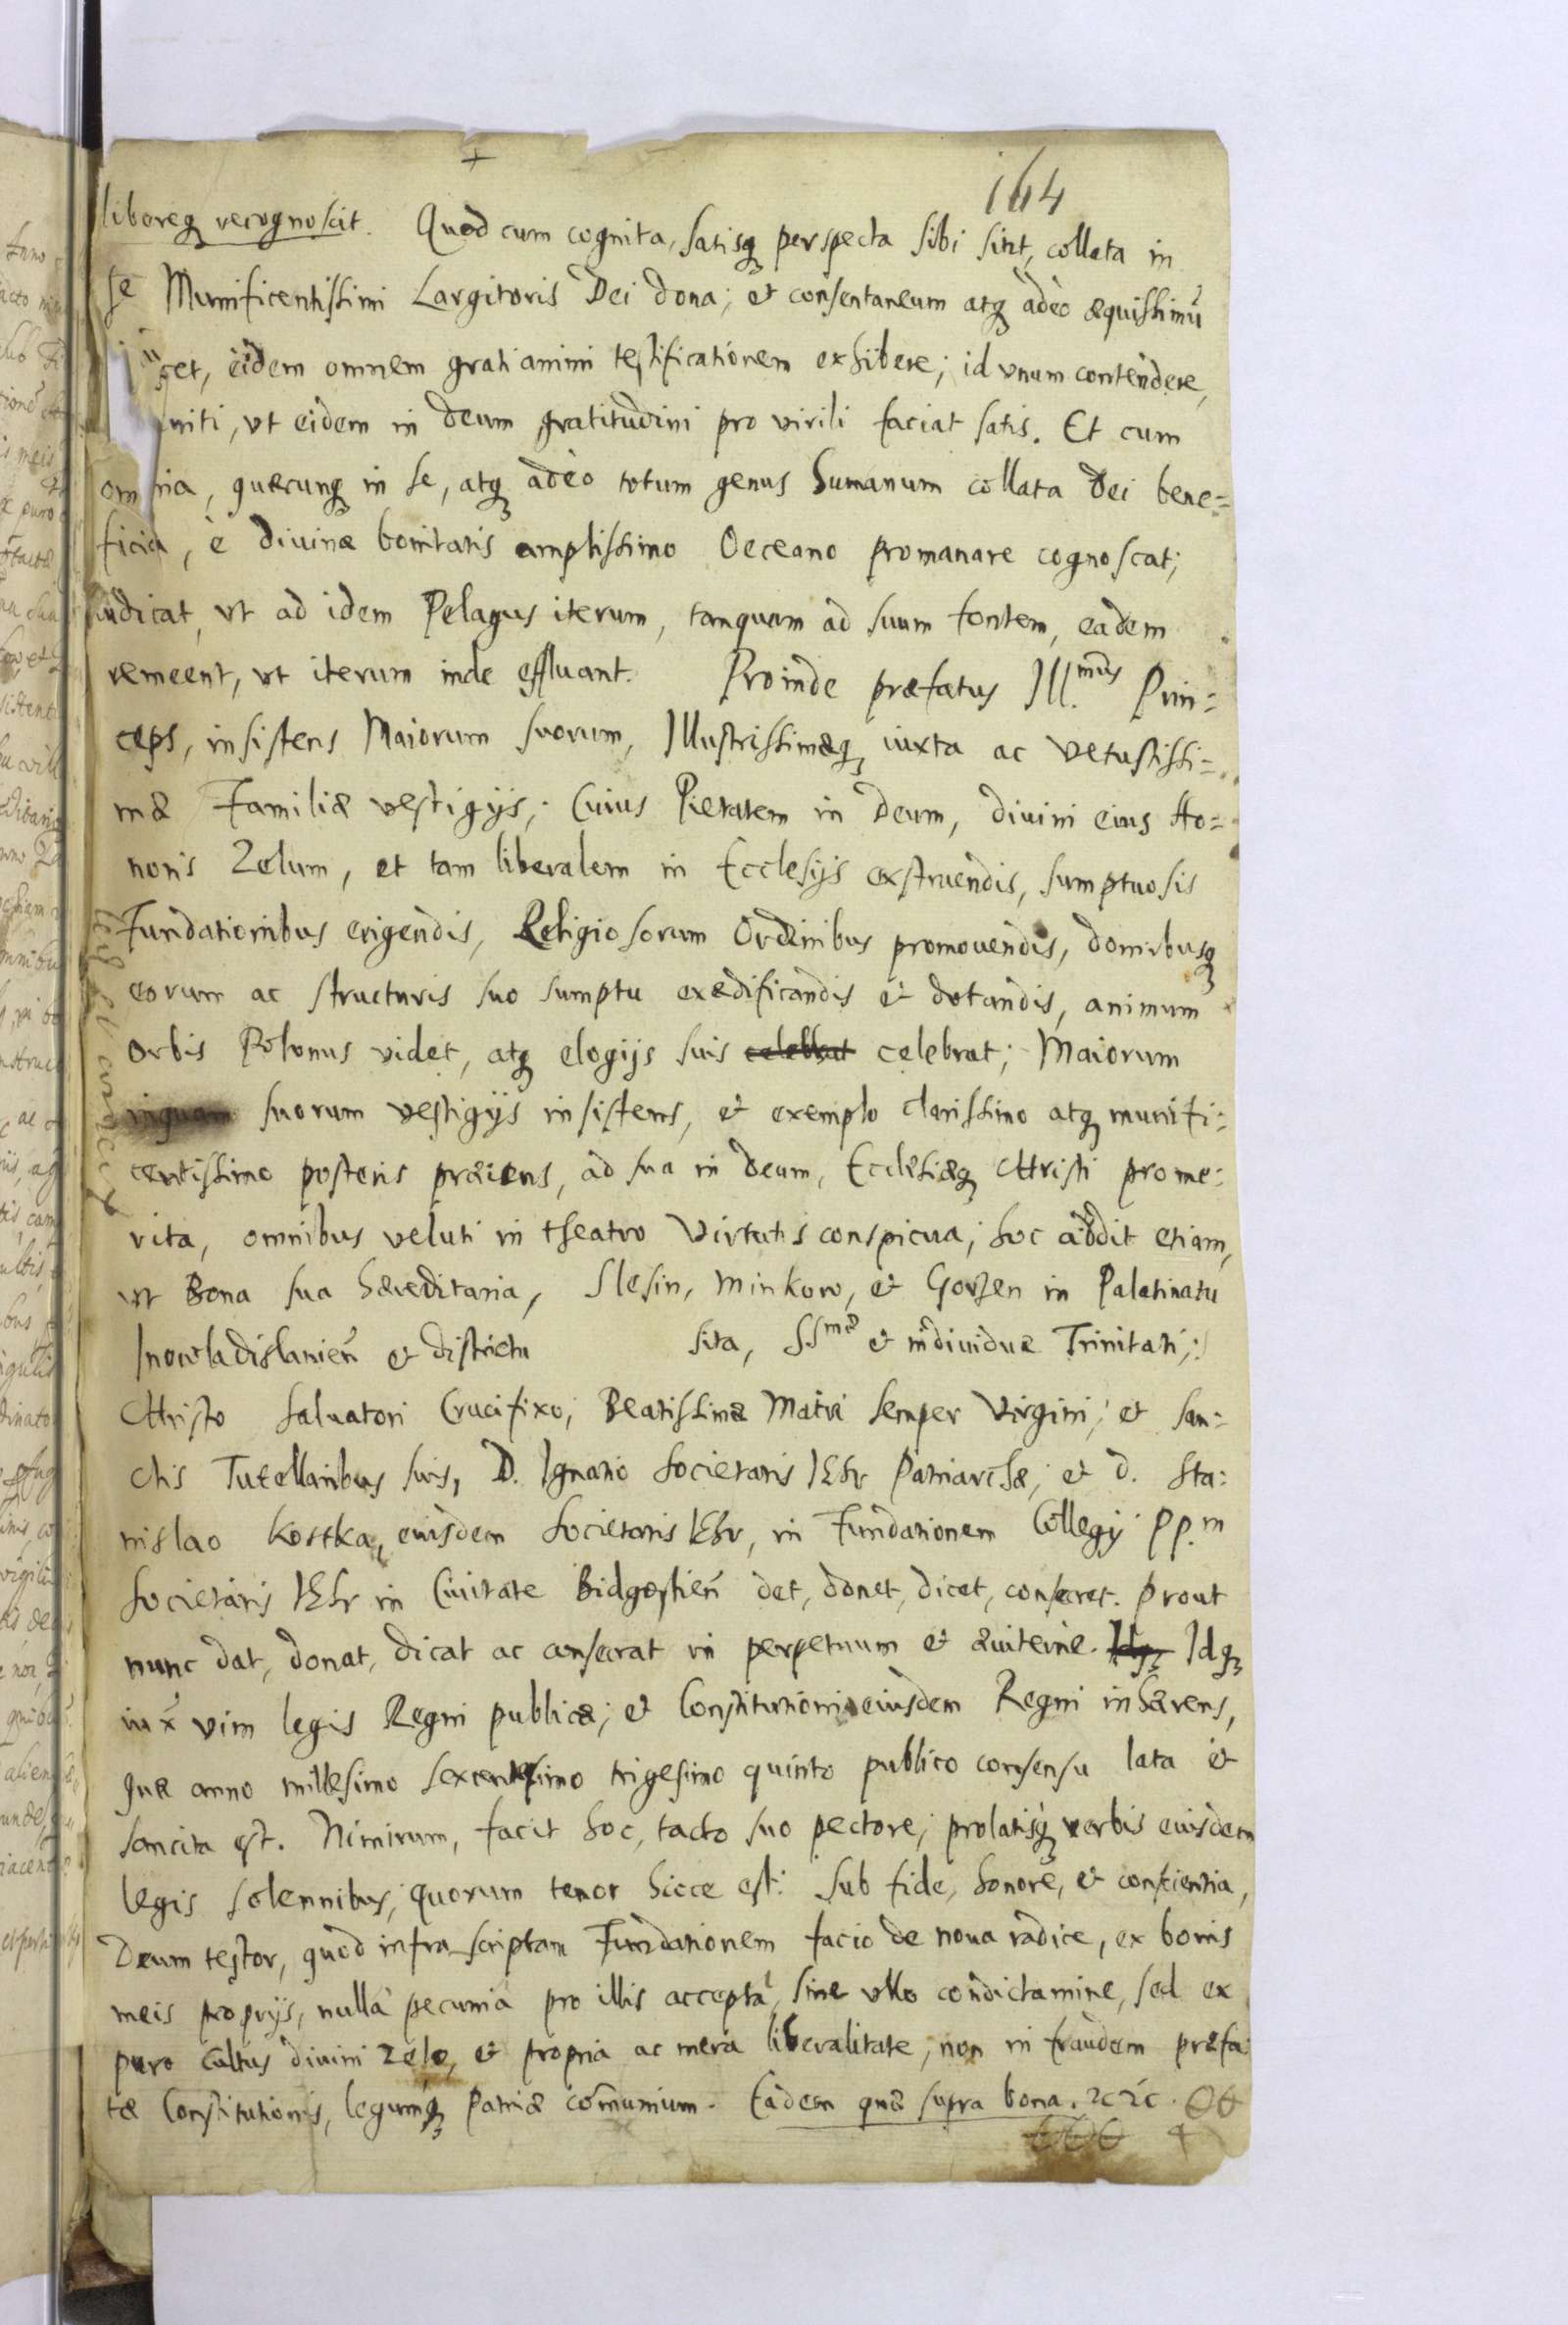 +
164
libereq; recognoscit. Quod cum cognita, satisq; perspecta sibi sint, collata in
se Munificentissimi Largitoris Dei dona; et consentaneum atq; adeò æquissimũ
cet, eidem omnem gratianimi testificationem exhibere; id vnum contendere,
niti, vt eidem in Deum gratitudini pro virili faciat satis. Et cum
omnia, quæcunq; in se, atq; adeò totum genus humanum collata Dei bene=
ficia, è diuinæ bonitatis amplissimo Oeceano promanare cognoscat;
iudicat, vt ad idem Pelagus iterum, tanquam ad suum fontem, eadem
remeent, vt iterum inde effluant. Proinde præfatus Ill.mus Prin=
ceps, insistens Maiorum suorum, Illustrissimæq; iuxta ac vetustissi=
mæ Familiæ vestigijs; Cuius Pietatem in Deum, diuini eius Ho=
noris Zelum, et tam liberalem in Ecclesijs exstruendis, sumptuosis
Fundationibus erigendis, Religiosorum Ordinibus promouendis, domibusq;
eorum ac structuris suo sumptu exædificandis et dotandis, animum
Orbis Polonus videt, atq; elogijs suis celebrat celebrat; Maiorum
inquam suorum vestigijs insistens, et exemplo clarissimo atq; munifi=
centissimo posteris præiens, ad sua in Deum, Ecclesiæq; Christi prome=
rita, omnibus veluti in theatro Virtutis conspicua; hoc addit etiam,
vt Bona sua hæreditaria, Slesin, Minkow, et Gorzen in Palatinatu
Inowladislauieñ et districtu sita, SSmæ et indiuiduæ Trinitati;
Christo Saluatori Crucifixo; Beatissimæ Matri semper Virgini; et san=
ctis Tutellaribus suis, D. Ignatio Societatis IESu Patriarchæ; et D. Sta=
nislao Kostka, eiusdem Societatis IESu, in Fundationem Collegij PP.m
Societatis IESu in Ciuitate Bidgostień det, donet, dicet, consecret. Prout
nunc dat, donat, dicat ac consecrat in perpetuum et æuiternè. Idq; Idq;
iux̃ vim legis Regni publicæ; et Constitutioni eiusdem Regni inhærens,
quæ anno millesimo sexcentesimo trigesimo quinto publico consensu lata et
sancita est. Nimirum, facit hoc, tacto suo pectore; prolatisq; verbis eiusdem
legis solennibus; quorum tenor hicce est: Sub fide, honore, et conscientia,
Deum testor, quod infra scriptam Fundationem facio de noua radice, ex bonis
meis proprijs, nullâ pecuniâ pro illis acceptâ, sine vllo condictamine, sed ex
puro Cultus diuini zelo, et propria ac mera liberalitate; non in fraudem præfa=
tæ Constitutionis, legumq; Patriæ com̃unium. Eadem quæ supra bona. &c &c.